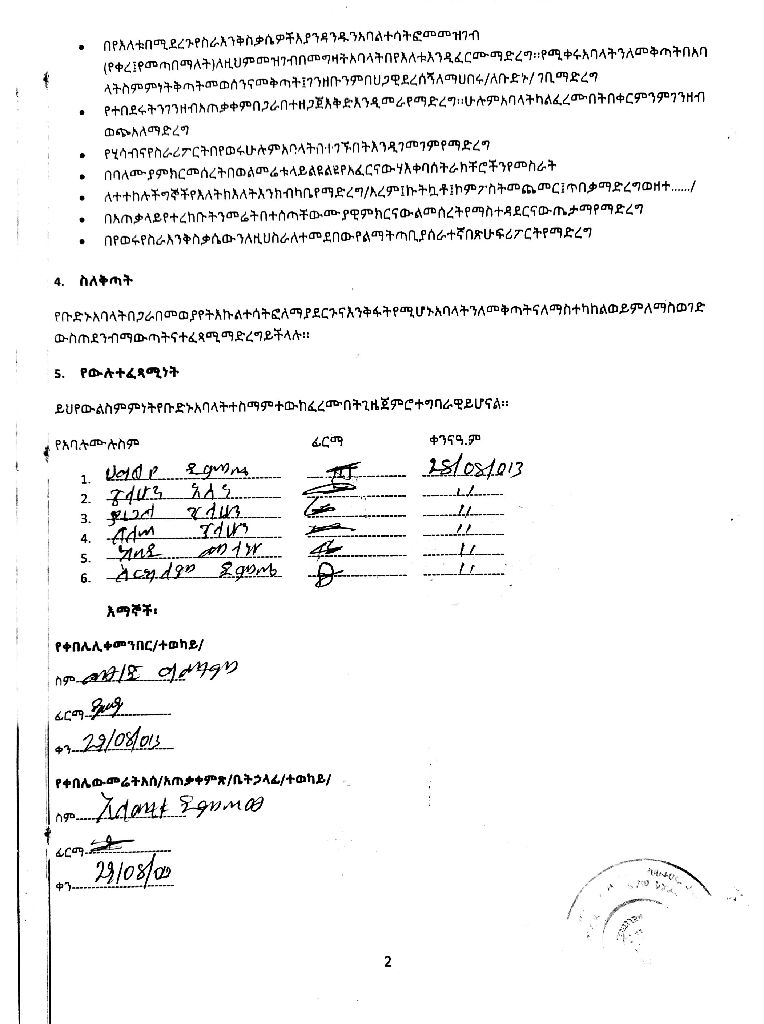 • በየእለቱበሚደረጉየስራእንቅስቃሴዎችእያንዳንዱንአባልተሳትፎመመዝገብ
(የቀረ፤የመጣበማለት)ለዚህምመዝገብበመግዛትአባላትበየእለቱእንዲፈርሙማድረግ፡፡የሚቀሩአባላትንለመቅጣትበአባ
ላትስምምነትቅጣትመወሰንናመቅጣት፤ገንዘቡንምበህጋዊደረሰኝለማህበሩ/ለቡድኑ/ ገቢማድረግ
• የተበደሩትንገንዘብአጠቃቀምበጋራበተዘጋጀእቅድእንዲመራየማድረግ፡፡ሁሉምአባላትካልፈረሙበትበቀርምንምገንዘብ
ወጭአለማድረግ
• የሂሳብናየስራሪፖርትበየወሩሁሉምአባላትበተገኙበትእንዲገመገምየማድረግ
• በባለሙያምክርመሰረትበወልመሬቱላይልዩልዩየአፈርናውሃእቀባስትራክቸሮችንየመስራት
• ለተተከሉችግኞችየእለትከእለትእንክብካቤየማድረግ/አረም፤ኩትኳቶ፤ኮምፖስትመጨመር፤ጥበቃማድረግወዘተ....../
• በአጠቃላይየተረከቡትንመሬትበተሰጣቸውሙያዊምክርናውልመሰረትየማስተዳደርናውጤታማየማድረግ
• በየወሩየስራእንቅስቃሴውንለዚህስራለተመደበውየልማትጣቢያሰራተኛበጽሁፍሪፖርትየማድረግ
4. ስለቅጣት
የቡድኑአባላትበጋራበመወያየትእኩልተሳትፎለማያደርጉናእንቅፋትየሚሆኑአባላትንለመቅጣትናለማስተካከልወይምለማስወገድ
ውስጠደንብማውጣትናተፈጻሚማድረግይችላሉ፡፡
5. የውሉተፈጻሚነት
ይህየውልስምምነትየቡድኑአባላትተስማምተውከፈረሙበትጊዜጀምሮተግባራዊይሆናል፡፡
የአባሉሙሉስም ፊርማ ቀንናዓ.ም
1. 28/08/013
2. ''
3. ''
4. ''
5. ''
6. ''
እማኞች፡
የቀበሌሊቀመንበር/ተወካይ/
ስም
ፊርማ
ቀን 29/08/013
የቀበሌውመሬትአስ/አጠቃቀምጽ/ቤትኃላፊ/ተወካይ/
ስም
ፊርማ
ቀን 29/08/013
2